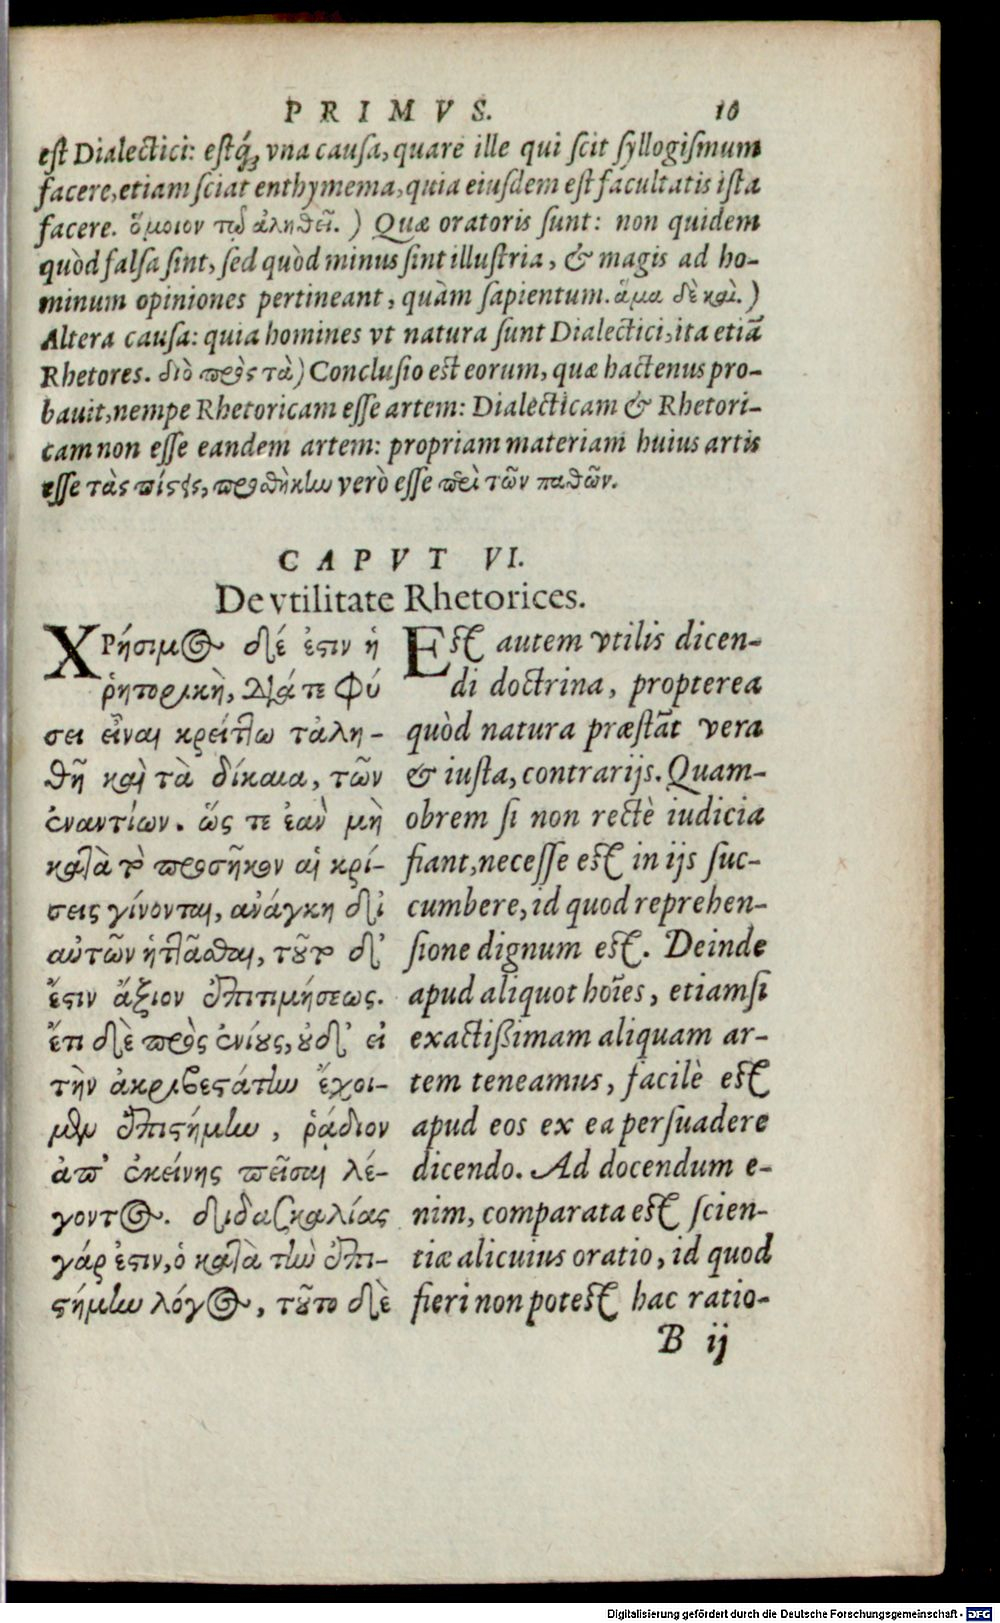 PRIMVS. 10
est Dialectici: estq́ʒ vna causa, quare ille qui scit syllogismum
facere, etiam sciat enthymema, quia eiusdem est facultatis ista
facere. ὅμοιον τῷ ἀληθεῖ.) Quæ oratoris sunt: non quidem
quòd falsa sint, sed quòd minus sint illustria, & magis ad ho-
minum opiniones pertineant, quàm sapientum. ἅμα δὲ καὶ.)
Altera causa: quia homines vt natura sunt Dialectici, ita etiã
Rhetores. διὸ πρὸς τὰ) Conclusio est eorum, quæ hactenus pro-
bauit, nempe Rhetoricam esse artem: Dialecticam & Rhetori-
cam non esse eandem artem: propriam materiam huius artis
esse τὰς πίστεις, προσθήκην verò esse περὶ τῶν παθῶν.
CAPVT VI.
De vtilitate Rhetorices.
ΧΡήσιμος δέ ἐστιν ἡ
ῥητορικὴ, διά τε φύ
σει εἶναι κρείττω τἀλη-
θῆ καὶ τὰ δίκαια, τῶν
ἐναντίων. ὥς τε ἐὰν μὴ
κατὰ τὸ προσῆκον αἱ κρί-
σεις γίνονται, ἀνάγκη δι'
αὐτῶν ἡττᾶσθαι, τοῦτο δ'
ἔστιν ἄξιον ἐπιτιμήσεως.
ἔτι δὲ πρὸς ἐνίους, οὐδ' εἰ
τὴν ἀκριβεστάτην ἔχοι-
μεν ἐπιστήμην, ῥᾴδιον
ἀπ' ἐκείνης πεῖσαι λέ-
γοντος. διδασκαλίας
γάρ ἐστιν, ὁ κατὰ τὴν ἐπι-
στήμην λόγος, τοῦτο δὲ
Est autem vtilis dicen-
di doctrina, propterea
quòd natura præstãt vera
& iusta, contrarijs. Quam-
obrem si non rectè iudicia
fiant, necesse est in ijs suc-
cumbere, id quod reprehen-
sione dignum est. Deinde
apud aliquot hoīes, etiamsi
exactißimam aliquam ar-
tem teneamus, facilè est
apud eos ex ea persuadere
dicendo. Ad docendum e-
nim, comparata est scien-
tiæ alicuius oratio, id quod
fieri non potest hac ratio-
B ij
Digitalisierung gefördert durch die Deutsche Forschungsgemeinschaft - DFG